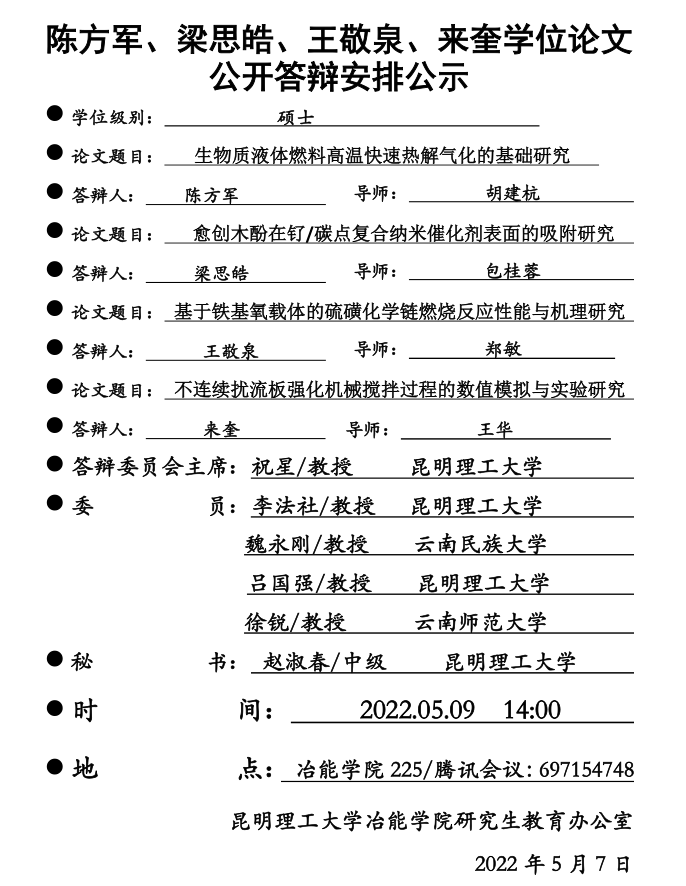 陈方军、梁思皓、王敬泉、来奎学位论文
公开答辩安排公示
● 学位级别： 硕士
● 论文题目： 生物质液体燃料高温快速热解气化的基础研究
● 答辩人： 陈方军 导师： 胡建杭
● 论文题目： 愈创木酚在钌/碳点复合纳米催化剂表面的吸附研究
● 答辩人： 梁思皓 导师： 包桂蓉
● 论文题目： 基于铁基氧载体的硫磺化学链燃烧反应性能与机理研究
● 答辩人： 王敬泉 导师： 郑敏
● 论文题目： 不连续扰流板强化机械搅拌过程的数值模拟与实验研究
● 答辩人： 来奎 导师： 王华
● 答辩委员会主席：祝星/教授 昆明理工大学
● 委 员：李法社/教授 昆明理工大学
魏永刚/教授 云南民族大学
吕国强/教授 昆明理工大学
徐锐/教授 云南师范大学
● 秘 书： 赵淑春/中级 昆明理工大学
● 时 间： 2022.05.09 14:00
● 地 点： 冶能学院 225/腾讯会议：697154748
昆明理工大学冶能学院研究生教育办公室
2022 年 5 月 7 日